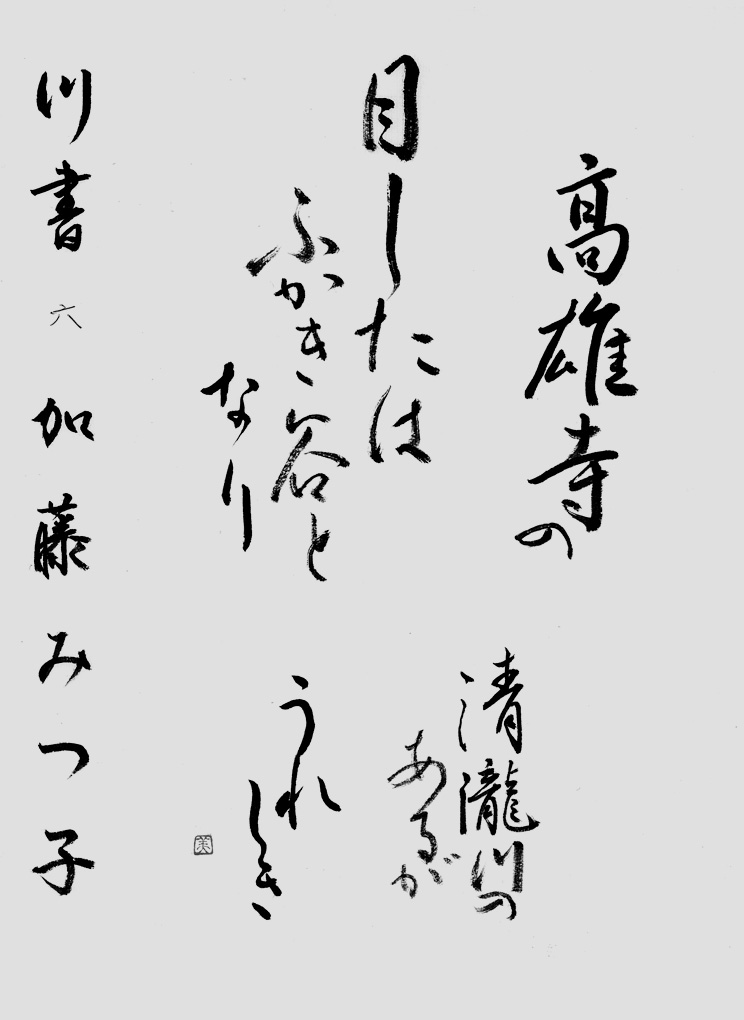 高雄寺の
目したは
ふかき谷と
なり
清瀧川の
あるが
うれ
しき
川書 六 加藤みつ子
美